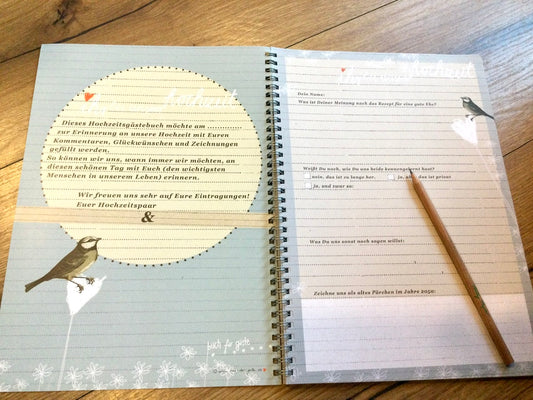 Hochzeit
Dieses Hochzeitsgästebuch möchte am ............
zur Erinnerung an unsere Hochzeit mit Euren
Kommentaren, Glückwünschen und Zeichnungen
gefüllt werden.
So können wir uns, wann immer wir möchten, an
diesen schönen Tag mit Euch (den wichtigsten
Menschen in unserem Leben) erinnern.
Wir freuen uns sehr auf Eure Eintragungen!
Euer Hochzeitspaar
&
buch für gäste
Hochzeit
Dein Name:
Was ist Deiner Meinung nach das Rezept für eine gute Ehe?
Weißt Du noch, wie Du uns beide kennengelernt hast?
nein, das ist zu lange her.
ja, das ist privat
ja, und zwar so:
Was Du uns sonst noch sagen willst:
Zeichne uns als altes Pärchen im Jahre 2050: